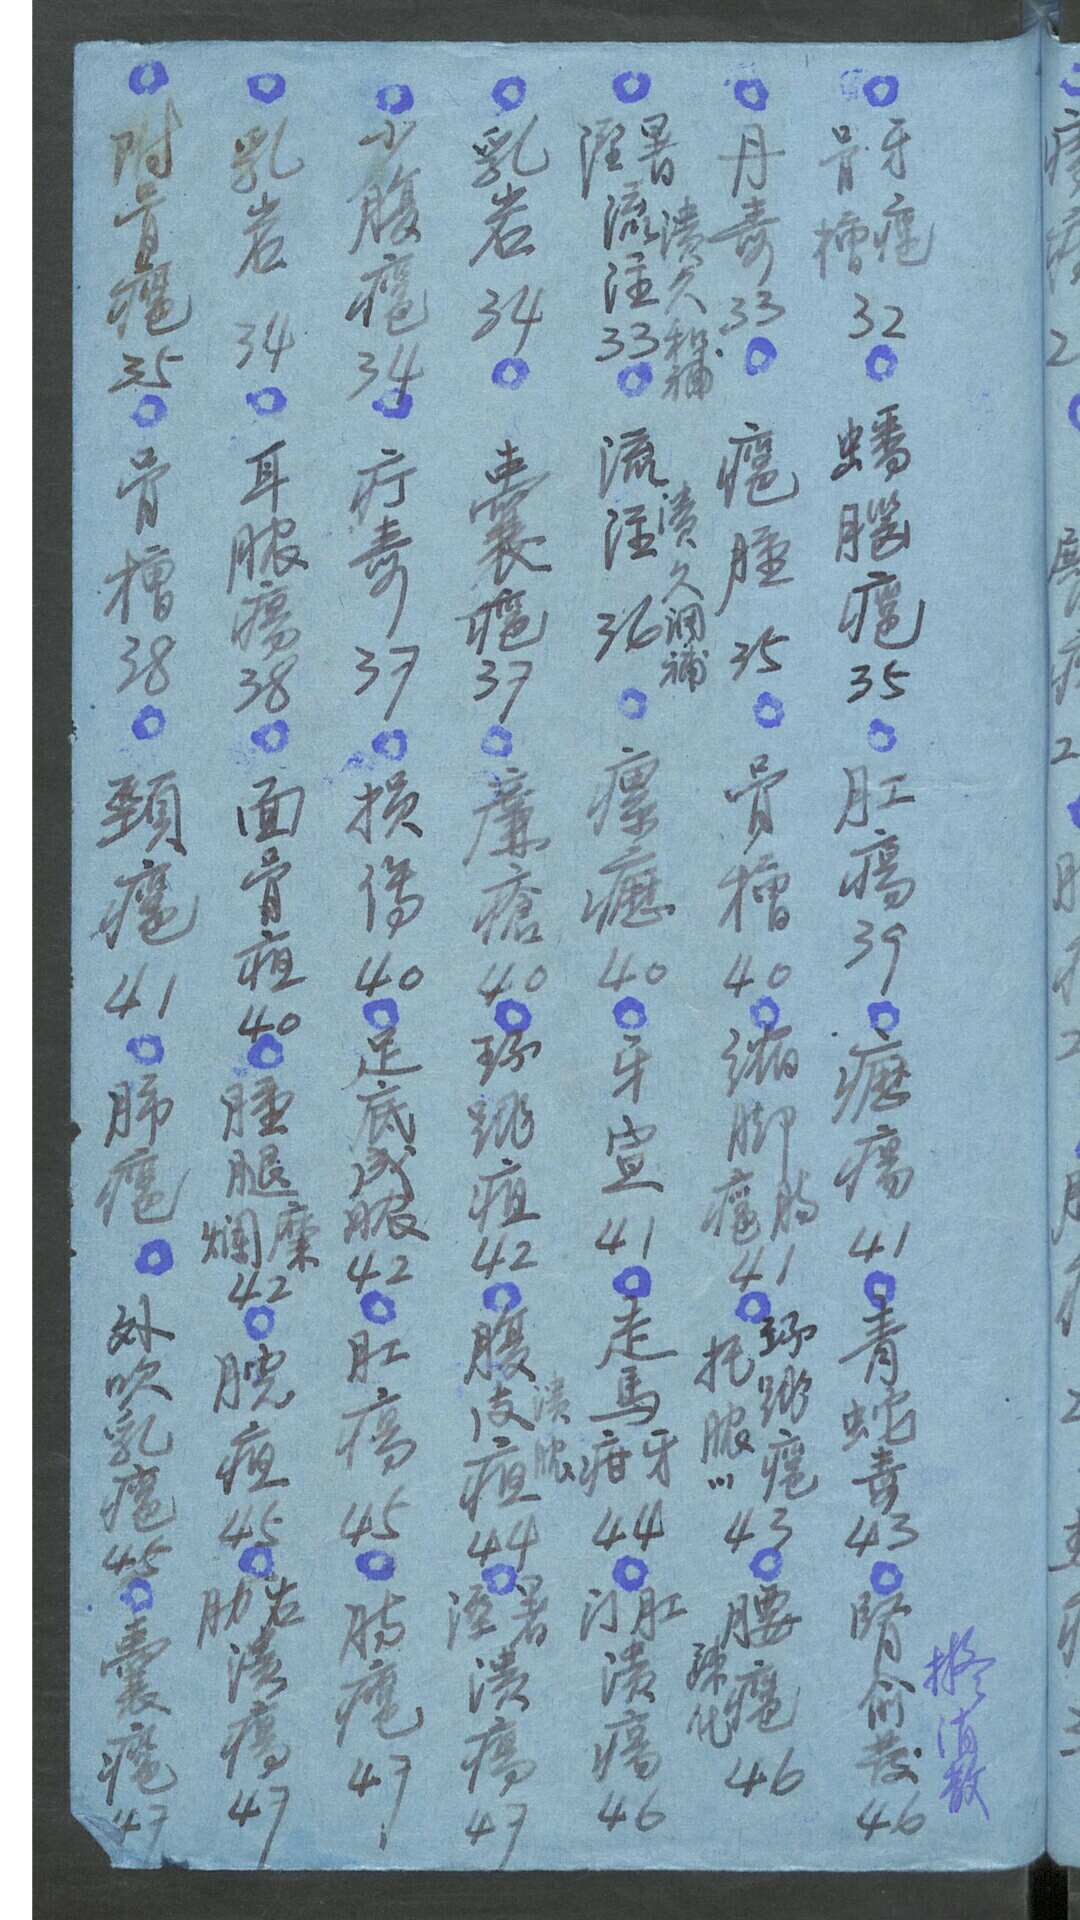 牙癰骨槽 32 蟠腦癰 35 肛瘍 39 瘰瘍 41 青蛇毒 43 腎俞發 46 擬消散
丹毒 33 癰腫 35 骨槽 40 縮脚腸癰 41 環跳癰 托膿 43 腰癰 46
暑溼流注 33 潰久和補 流注 36 潰久調補 瘰癧 40 牙宣 41 走馬牙疳 44 肛潰瘍 46
乳岩 34 囊癰 37 廉瘡 40 環跳疽 42 腹皮疽 潰膿 44 暑溼潰瘍 47
小腹癰 34 疔毒 37 损傷 40 足底成膿 42 肛瘍 45 腸癰 47
乳岩 34 耳膿瘍 38 面骨疽 40 腫腿糜爛 42 脘疽 45 肋岩潰瘍 47
附骨癰 35 骨槽 38 頸癰 41 肺癰 外吹乳癰 45 囊癰 47